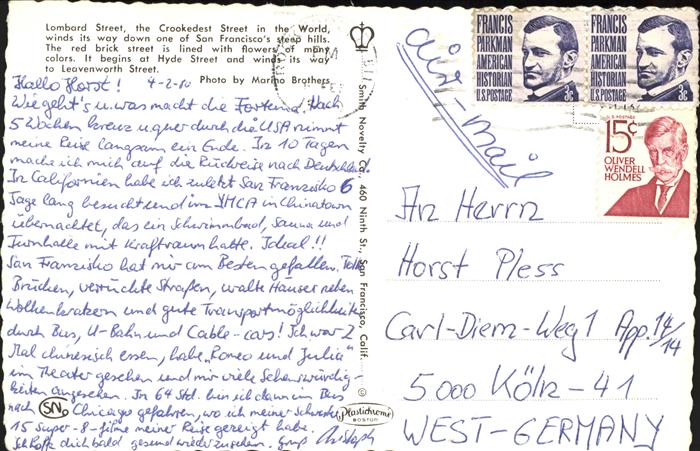 Lombard Street, the Crookedest Street in the World,
winds its way down one of San Francisco's steep hills.
The red brick street is lined with flowers of many
colors. It begins at Hyde Street and winds its way
to Leavenworth Street.
Photo by Marino Brothers
Hallo Horst! 4-2-80
Wie geht's u. was macht die Fortuna. Nach
5 Wochen kreuz u. quer durch die USA nimmt
meine Reise langsam ein Ende. In 10 Tagen
mache ich mich auf die Rückreise nach Deutschland.
In Californien habe ich zuletzt San Franzisko 6
Tage lang besucht und im YMCA in Chinatown
übernachtet, das ein Schwimmbad, Sauna und
Turnhalle mit Kraftraum hatte. Ideal!!
San Franzisko hat mir am Besten gefallen. Tolle
Brücken, verrückte Straßen, uralte Häuser neben
Wolkenkratzern und gute Transportmöglichkeiten
durch Bus, U-Bahn und Cable-cars! Ich war 2
Mal chinesisch essen, habe „Romeo und Julia"
im Theater gesehen und mir viele Sehenswürdig-
keiten angesehen. In 64 Std. bin ich dann im Bus
nach Chicago gefahren, wo ich meiner Schwester
15 Super-8-filme meiner Reise gezeigt habe.
Ich hoffe dich bald gesund wieder zusehen. Gruß Christoph
SNo
Smith Novelty Co., 460 Ninth St., San Francisco, Calif.
©
Plastichrome
BOSTON
air-mail
FRANCIS
PARKMAN
AMERICAN
HISTORIAN
U.S. POSTAGE 3¢
FRANCIS
PARKMAN
AMERICAN
HISTORIAN
U.S. POSTAGE 3¢
U.S. POSTAGE
15¢
OLIVER
WENDELL
HOLMES
An Herrn
Horst Pless
Carl-Diem-Weg 1 App. 14/14
5000 Köln-41
WEST-GERMANY